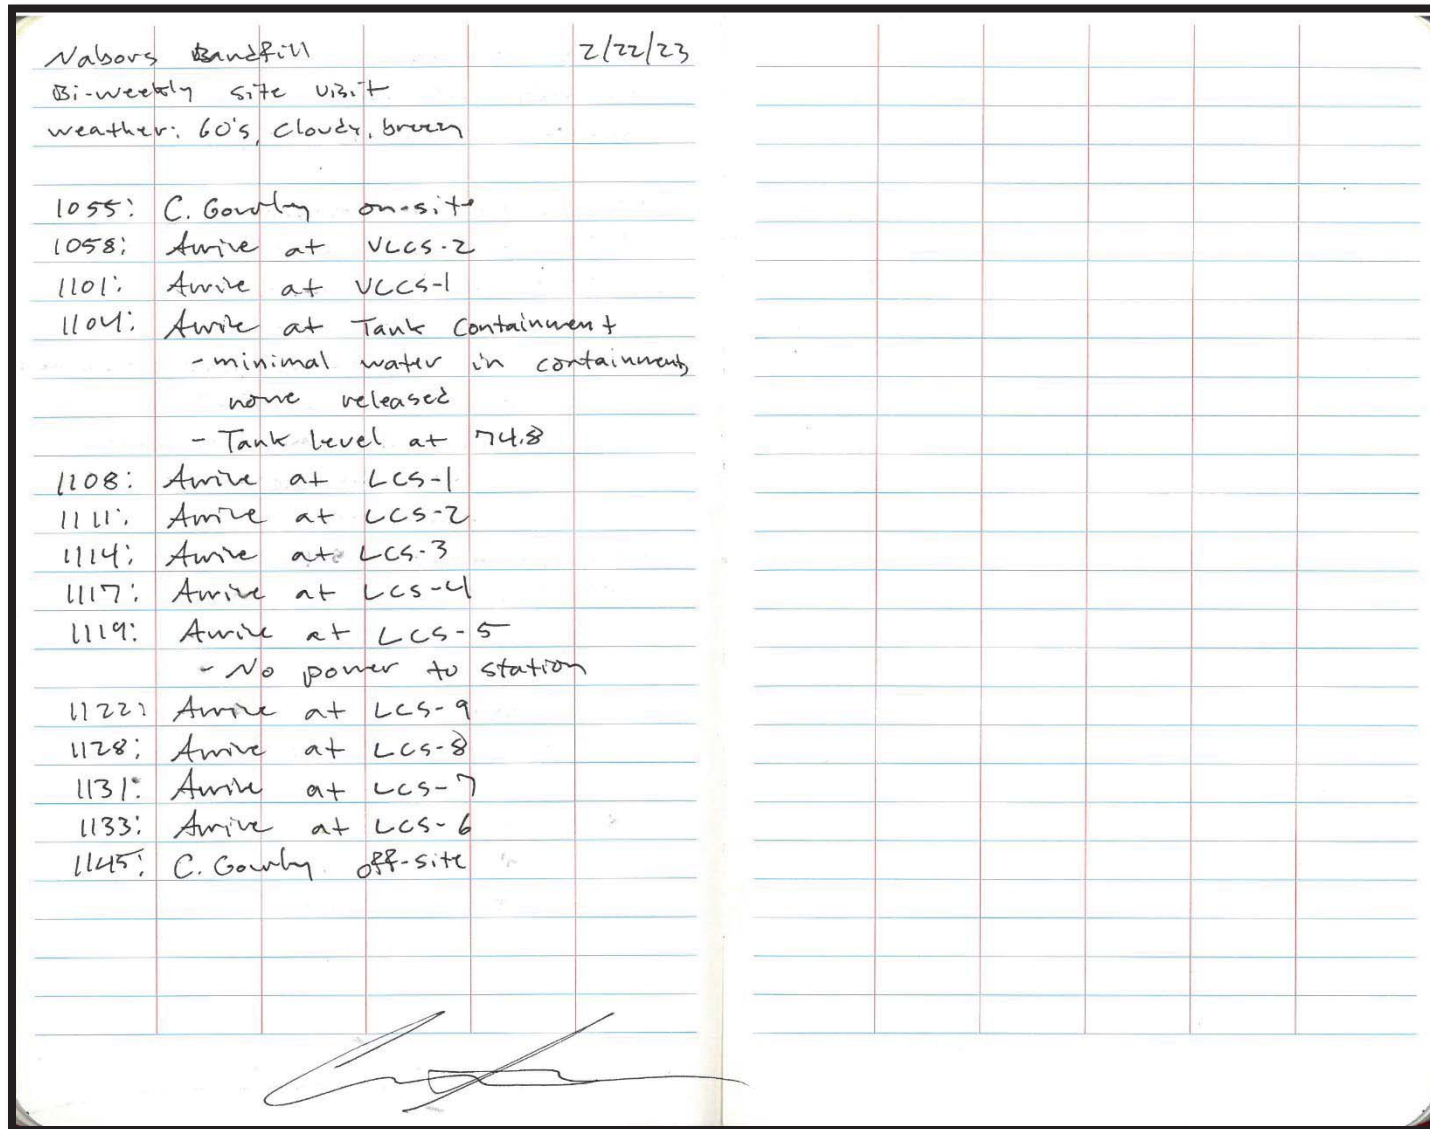 Nabors Bandfill 2/22/23
Bi-weekly site visit
weather: 60's, cloudy, breezy
1055: C. Gourley on-site
1058: Arrive at VLCS-2
1101: Arrive at VLCS-1
1104: Arrive at Tank Containment
- minimal water in containment,
none released
- Tank level at 74.8
1108: Arrive at LCS-1
1111: Arrive at LCS-2
1114: Arrive at LCS-3
1117: Arrive at LCS-4
1119: Arrive at LCS-5
- No power to station
1122: Arrive at LCS-9
1128: Arrive at LCS-8
1131: Arrive at LCS-7
1133: Arrive at LCS-6
1145: C. Gourley off-site